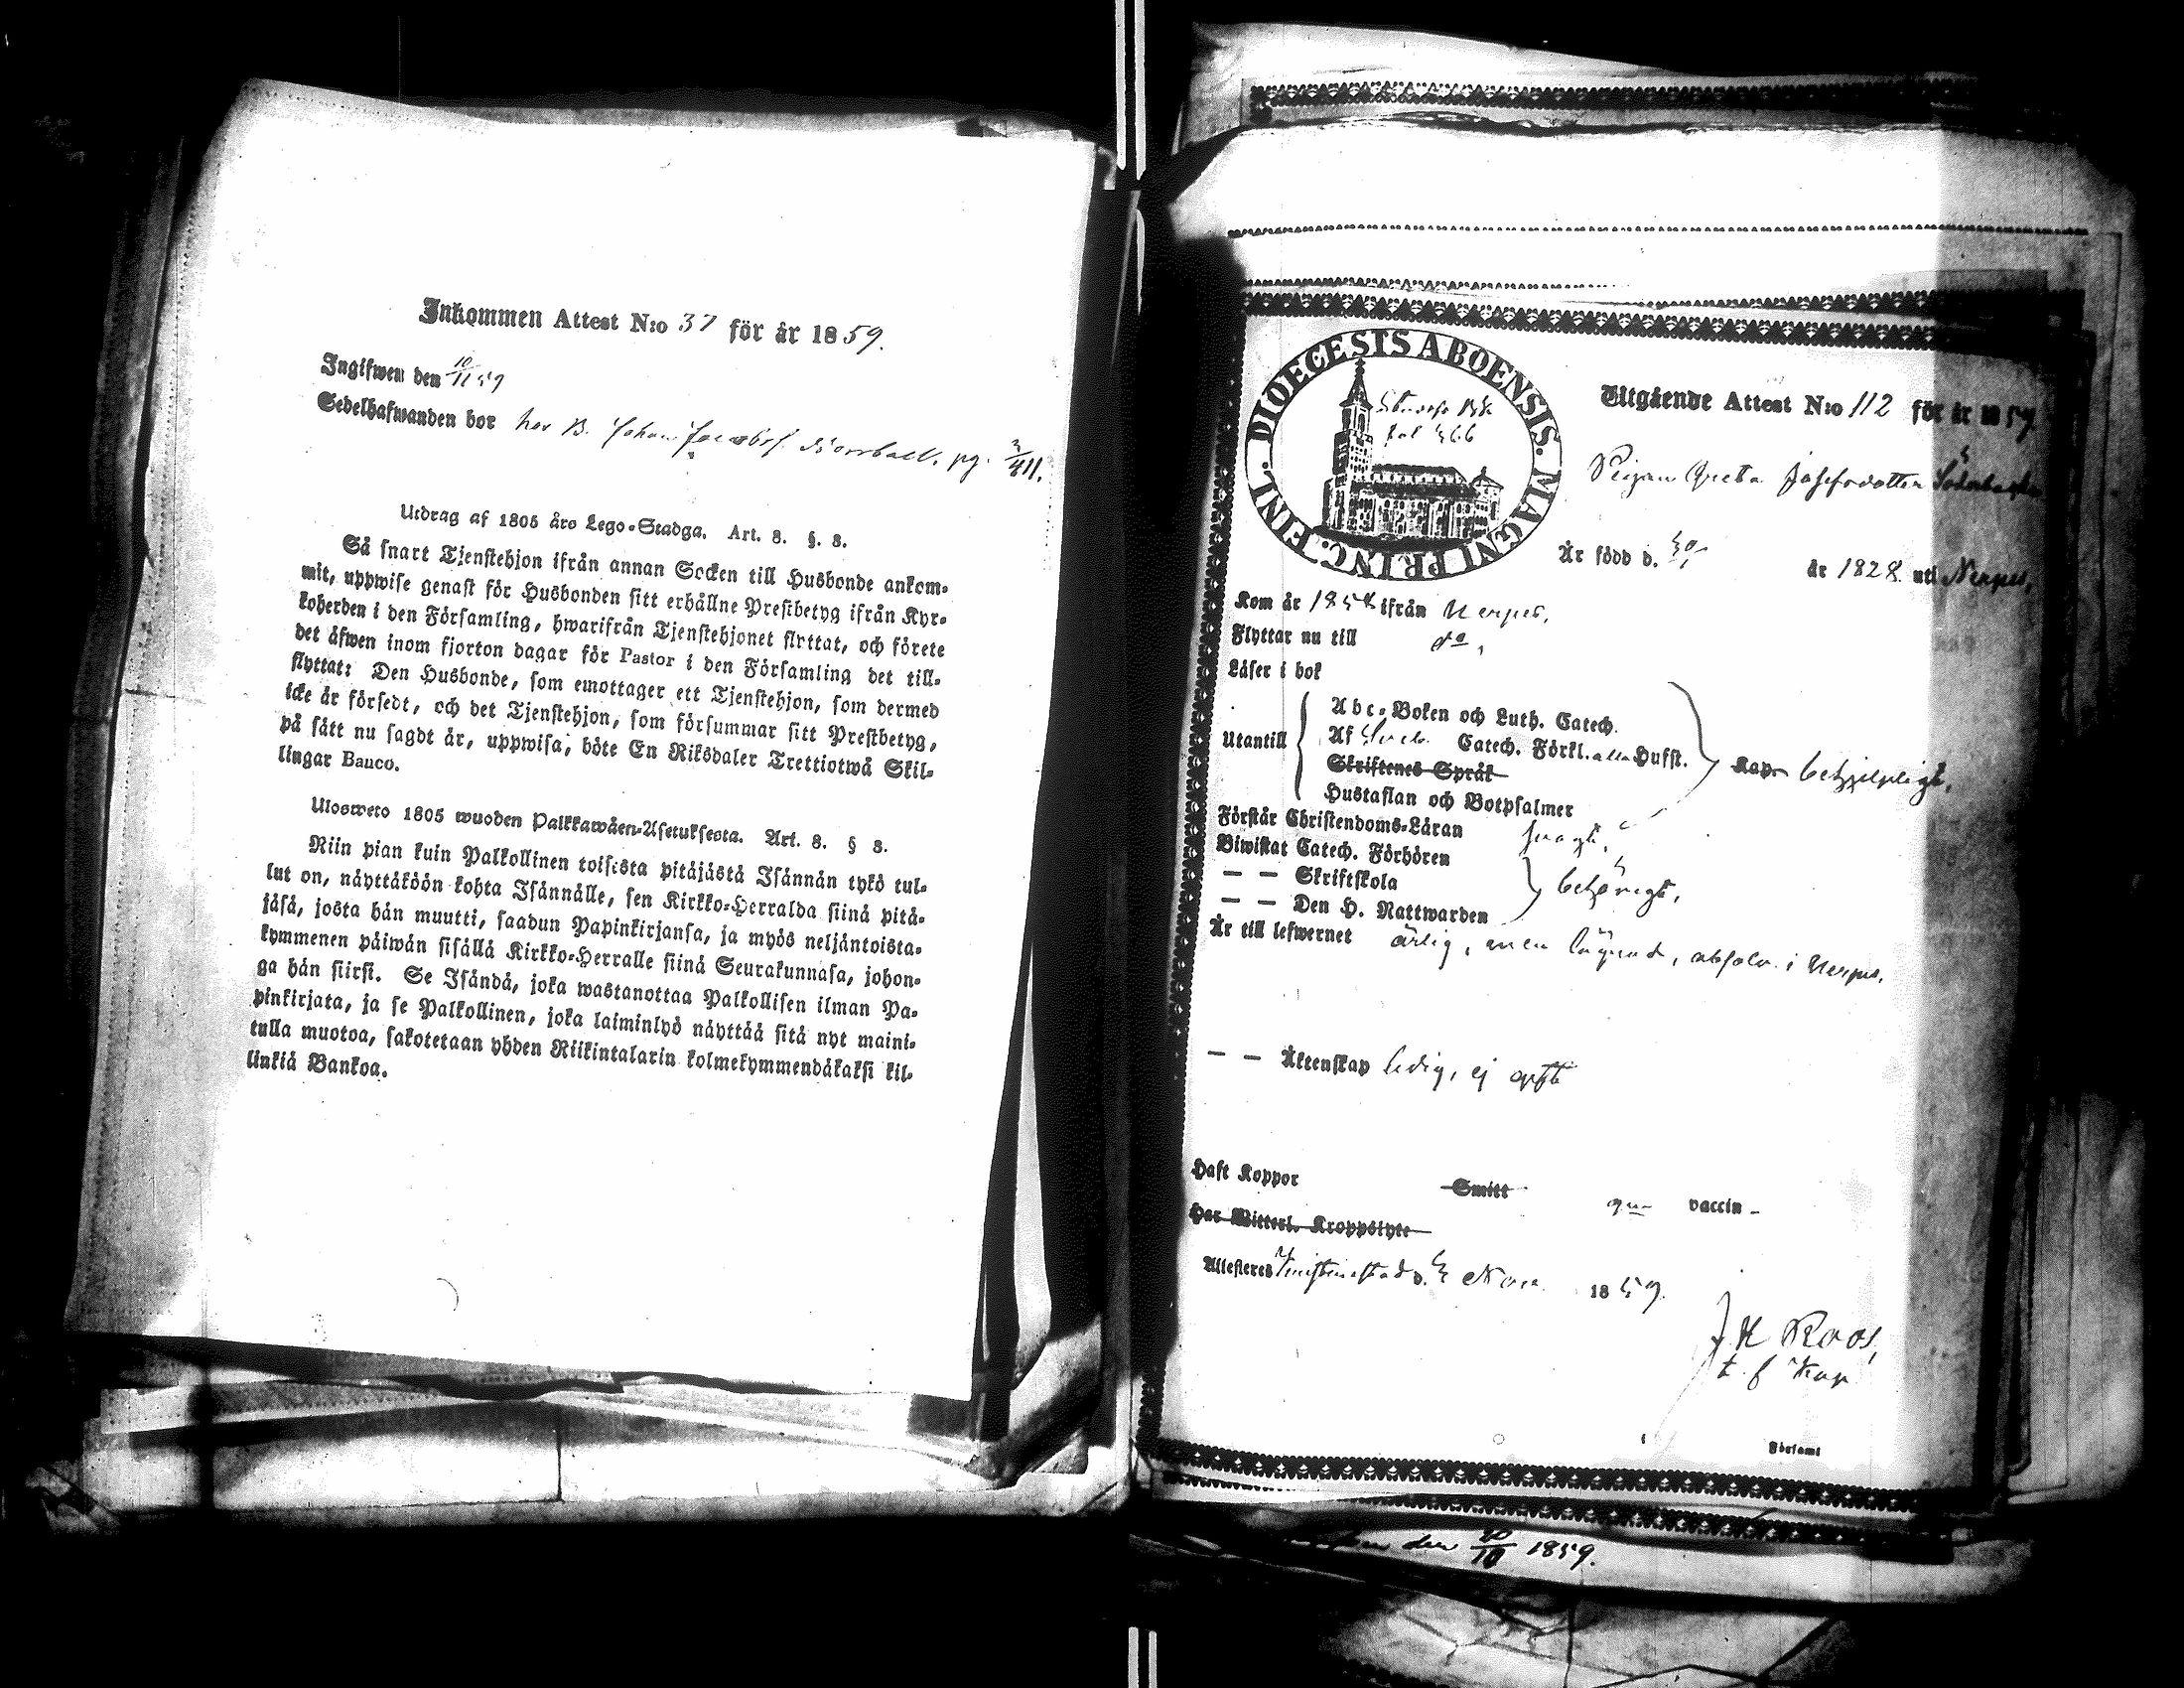 Inkommen Attest N:o 37 för år 1859.
Ingifwen den 10/11 59
Sedelhafwanden bor hos B. Johan Jacobss. pg. 2/411.
Utdrag af 1805 års Lego-Stadga. Art. 8. §. 8.
Så snart Tjenstehjon ifrån annan Socken till Husbonde ankom-
mit, uppwise genast för Husbonden sitt erhållne Prestbetyg ifrån Kyr-
koherden i den Församling, hwarifrån Tjenstehjonet flyttat, och förete
det äfwen inom fjorton dagar för Pastor i den Församling det till-
flyttat: Den Husbonde, som emottager ett Tjenstehjon, som dermed
icke är försedt, och det Tjenstehjon, som försummar sitt Prestbetyg,
på sätt nu sagdt är, uppwisa, böte En Riksdaler Trettiotwå Skil-
lingar Banco.
Ulosweto 1805 wuoden Palkkawäen-Asetuksesta. Art. 8. § 8.
Niin pian kuin Palkollinen toisesta pitäjästä Isännän tykö tul-
lut on, näyttäköön kohta Isännälle, sen Kirkko-Herralda siinä pitä-
jäsä, josta hän muutti, saadun Papinkirjansa, ja myös neljäntoista-
kymmenen päiwän sisällä Kirkko-Herralle siinä Seurakunnasa, johon-
ga hän siirsi. Se Isändä, joka wastanottaa Palkollisen ilman Pa-
pinkirjata, ja se Palkollinen, joka laiminlyö näyttää sitä nyt maini-
tulla muotoa, sakotetaan yhden Riikintalarin kolmekymmendäkaksi kil-
linkiä Bankoa.
DIOECESIS ABOENSIS. MAGNI PRINC. FINL.
fol 366
Utgående Attest N:o 112 för år 1859
Pigan Greta Josefsdotter
Är född d. år 1828. uti Nerpes,
Kom år 1858 ifrån Nerpes,
Flyttar nu till do,
Läser i bok
Utantill
Abc-Boken och Luth. Catech.
Af Catech. Förkl. alla Hufst.
Skriftenes Språk
Hustaflan och Botpsalmer
Kap behjelpligt,
Förstår Christendoms-Läran svagt,
Biwistat Catech. Förhören
— — Skriftskola
— — Den H. Nattwarden
behörigt,
Är till lefwernet ärlig, men lägrad, absolv. i Nerpes,
— — Äktenskap ledig, ej
Haft Koppor Smitt gm vaccin
Har Witterl. Kroppslyte
Attesteres Kristinestad d. 3 Nov. 1859.
J K Roos,
t. f Kap
Församl
den 20/10 1859.